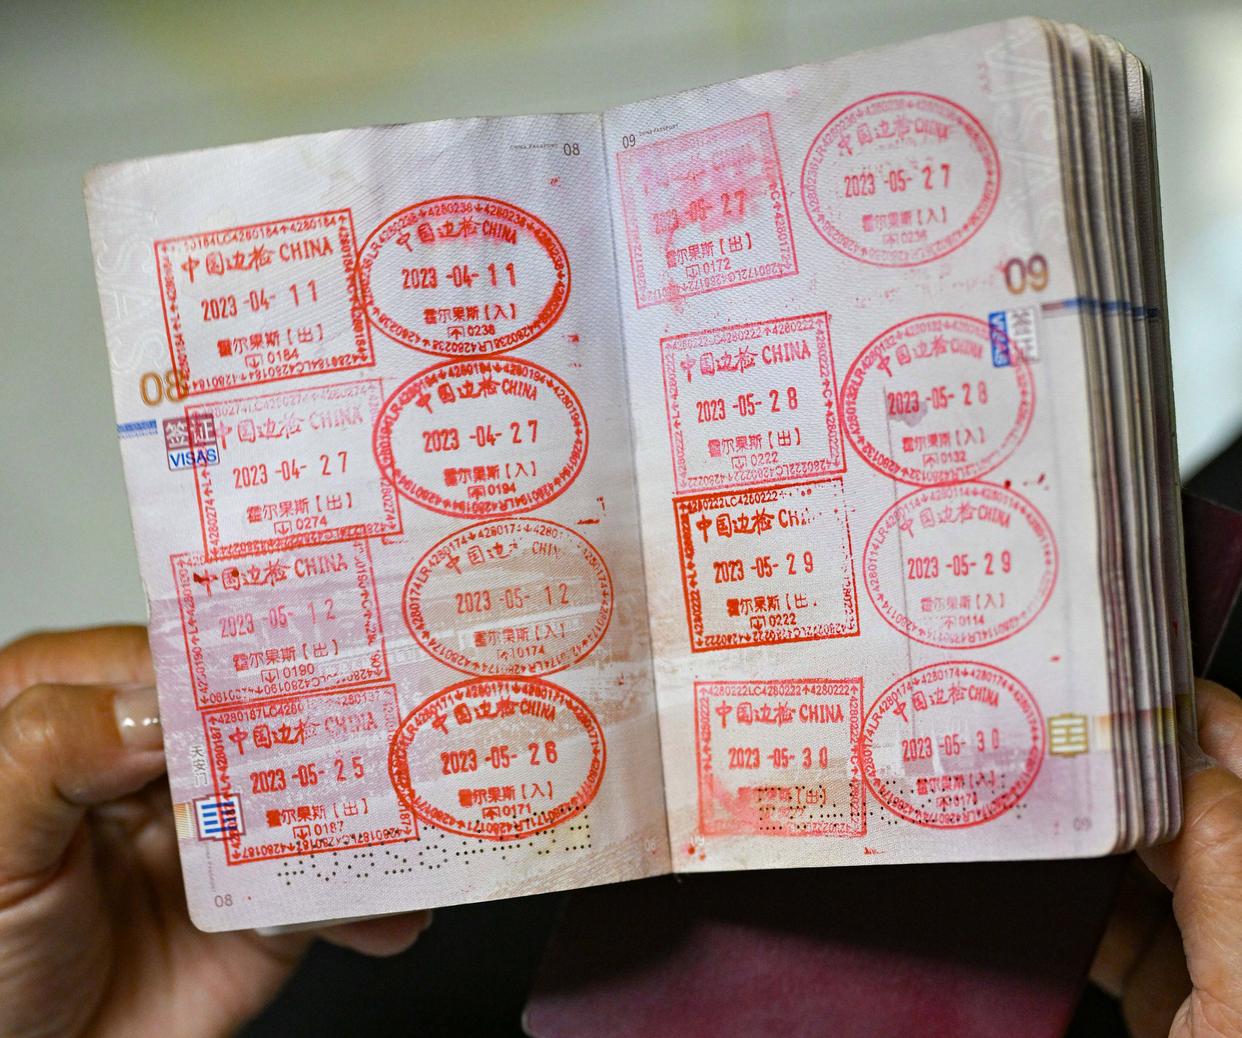 CHINA PASSPORT 08
中国边检 CHINA
2023 -04- 11
霍尔果斯【出】
0184
中国边检 CHINA
2023 -04- 11
霍尔果斯【入】
0238
08
签证
VISAS
中国边检 CHINA
2023 -04- 27
霍尔果斯【出】
0274
中国边检 CHINA
2023 -04- 27
霍尔果斯【入】
0194
中国边检 CHINA
2023 -05- 12
霍尔果斯【出】
0190
中国边检
2023 -05- 12
霍尔果斯【入】
0174
中国边检 CHINA
2023 -05- 25
霍尔果斯【出】
0187
中国边检 CHINA
2023 -05- 26
霍尔果斯【入】
0171
天安门
08
09 CHINA PASSPORT
2023 -05- 27
霍尔果斯【出】
0172
中国边检 CHINA
2023 -05- 27
霍尔果斯【入】
0236
09
VISAS
中国边检 CHINA
2023 -05- 28
霍尔果斯【出】
0222
中国边检 CHINA
2023 -05- 28
霍尔果斯【入】
0132
中国边检
2023 -05- 29
霍尔果斯【出
0222
中国边检 CHINA
2023 -05- 29
霍尔果斯【入】
0114
中国边检 CHINA
2023 -05- 30
霍尔果斯【出】
中国边检 CHINA
2023 -05- 30
霍尔果斯【入】
09